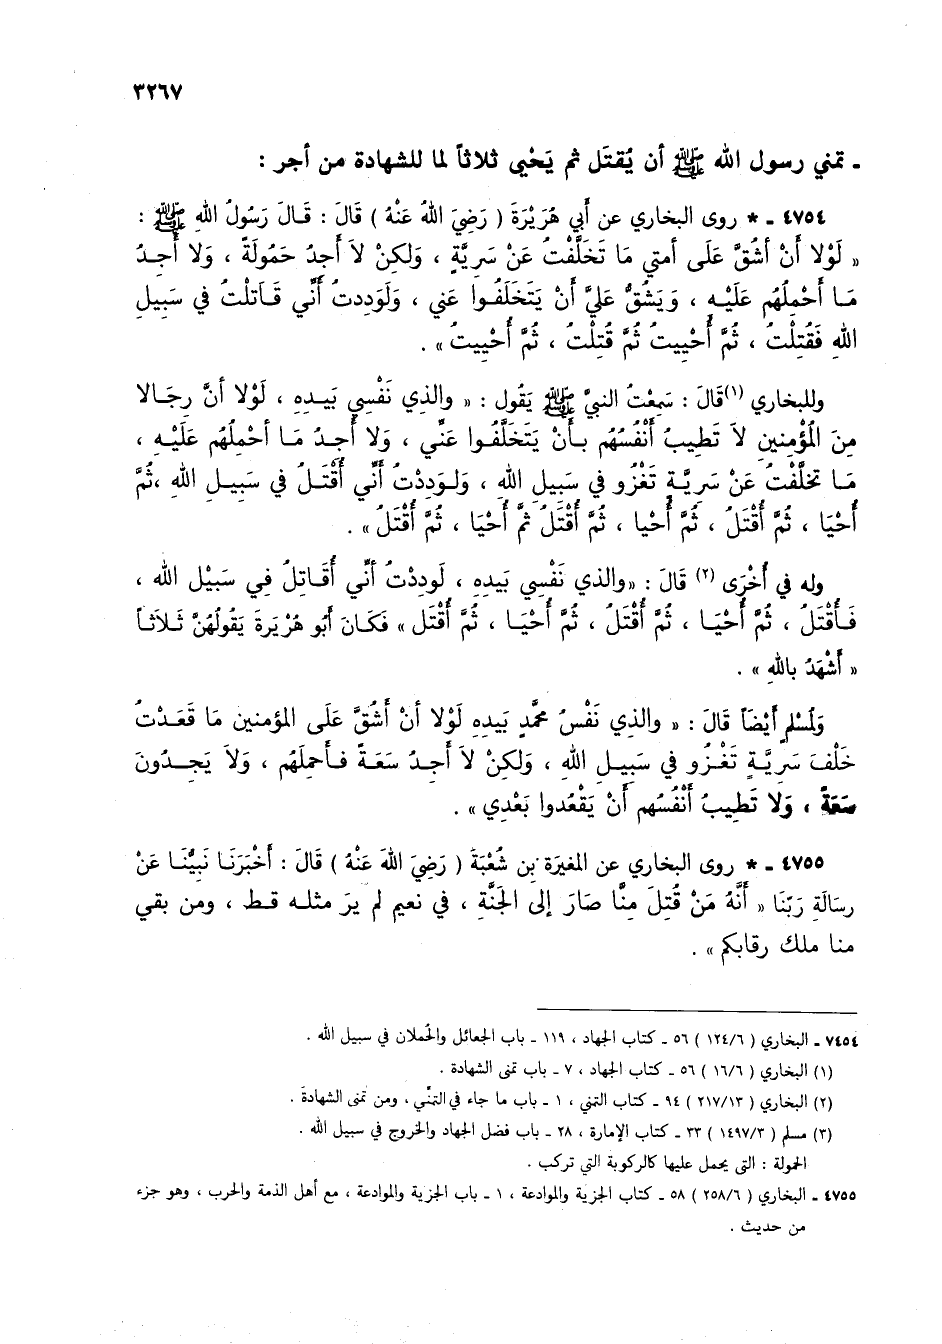 ٣٢٦٧
ـ تمني رسول الله ﷺ أن يُقتَل ثم يَحْيى ثلاثاً لما للشهادة من أجر :
٤٧٥٤ ـ * روى البخاري عن أبي هُرَيْرَةَ ( رَضِيَ اللهُ عَنْهُ ) قَالَ : قَالَ رَسُولُ اللهِ ﷺ :
« لَوْلا أَنْ أشُقَّ عَلَى أمتي مَا تَخَلَّفْتُ عَنْ سَرِيَّةٍ ، وَلَكِنْ لاَ أجِدُ حَمُولَةً ، وَلا أَجِدُ
مَا أَحْمِلُهُم عَلَيْهِ ، وَيَشُقُّ عَلَيَّ أَنْ يَتَخَلَّفُوا عَني ، وَلَوَدِدتُ أنِّي قَاتَلْتُ في سَبِيلِ
اللهِ فَقُتِلْتُ ، ثُمَّ أُحْيِيتُ ثُمَّ قُتِلْتُ ، ثُمَّ أُحْيِيتُ » .
وللبخاري (١) قَالَ : سَمِعْتُ النبيَّ ﷺ يَقُول : « والذي نَفْسِي بَيدهِ ، لَوْلا أنَّ رِجَالا
مِنَ الْمُؤْمِنين لاَ تَطِيبُ أنْفُسُهُم بأنْ يَتَخَلَّفُوا عَنِّي ، وَلا أجِدُ مَا أحْمِلُهُم عَلَيْهِ ،
مَا تخلَّفْتُ عَنْ سَرِيَّةٍ تَغْزُو في سَبِيلِ اللهِ ، وَلَوَدِدْتُ أنِّي أُقْتَلُ في سَبِيلِ اللهِ ،ثُمَّ
أُحْيَا ، ثُمَّ أُقْتَلُ ، ثُمَّ أُحْيا ، ثُمَّ أُقْتَلُ ثمَّ أُحْيَا ، ثُمَّ أُقْتَلُ » .
وله في أُخْرَى (٢) قَالَ : «والذي نَفْسِي بَيدهِ ، لَودِدْتُ أنِّي أُقَاتِلُ فِي سَبيْل الله ،
فَأُقْتَلُ ، ثُمَّ أُحْيَا ، ثُمَّ أُقْتَلُ ، ثُمَّ أُحْيَا ، ثُمَّ أُقْتَل » فَكَانَ أَبُو هُرَيرةَ يَقُولُهُنَّ ثَلاثاً
« أَشْهَدُ باللهِ » .
وَلمُسْلمٍ أَيْضَاً قَالَ : « والذي نَفْسُ محمَّدٍ بَيدهِ لَوْلا أنْ أَشُقَّ عَلَى المؤمنين مَا قَعَدْتُ
خَلْفَ سَرِيَّةٍ تَغْزُو في سَبِيلِ اللهِ ، وَلَكِنْ لاَ أَجِدُ سَعَةً فأَحمِلَهُم ، وَلاَ يَجِدُونَ
سَعَةً ، وَلا تَطِيبُ أَنْفُسُهم أَنْ يَقْعُدوا بَعْدِي » .
٤٧٥٥ ـ * روى البخاري عن المغيرَة بن شُعْبَةَ ( رَضِيَ اللهَ عَنْهُ ) قَالَ : أَخْبَرَنَا نَبيُّنَا عَنْ
رسَالَةِ رَبِّنَا « أَنَّهُ مَنْ قُتِلَ مِنَّا صَارَ إلى الجَنَّةِ ، في نعيم لم يرَ مثله قط ، ومن بقي
منا ملك رقابكم » .
٧٤٥٤ ـ البخاري ( ١٢٤/٦ ) ٥٦ ـ كتاب الجهاد ، ١١٩ ـ باب الجعائل والحُملان في سبيل الله .
(١) البخاري ( ١٦/٦ ) ٥٦ ـ كتاب الجهاد ، ٧ ـ باب تمنى الشهادة .
(٢) البخاري ( ٢١٧/١٣ ) ٩٤ ـ كتاب التمني ، ١ ـ باب ما جاء في التمنِّي ، ومن تمنى الشهادة .
(٣) مسلم ( ١٤٩٧/٣ ) ٣٣ ـ كتاب الإمارة ، ٢٨ ـ باب فضل الجهاد والخروج في سبيل الله .
الحمولة : التى يحمل عليها كالركوبة التي تركب .
٤٧٥٥ ـ البخاري ( ٢٥٨/٦ ) ٥٨ ـ كتاب الجزية والموادعة ، ١ ـ باب الجزية والموادعة ، مع أهل الذمة والحرب ، وهو جزء
من حديث .